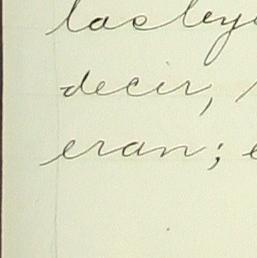 las ley
decir,
eran;